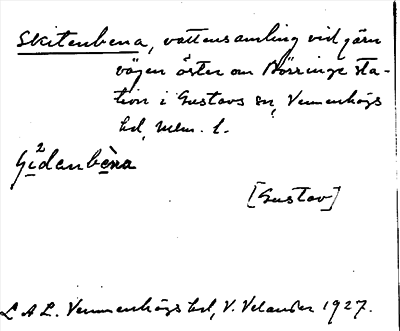 Skitenbena, vattensamling vid järn
vägen öster om Börringe sta-
tion i Gustavs sn, Vemmenhögs
hd, Mlm. l.
[Gustav]
L A L. Vemmenhögs hd, V. Velander 1927.